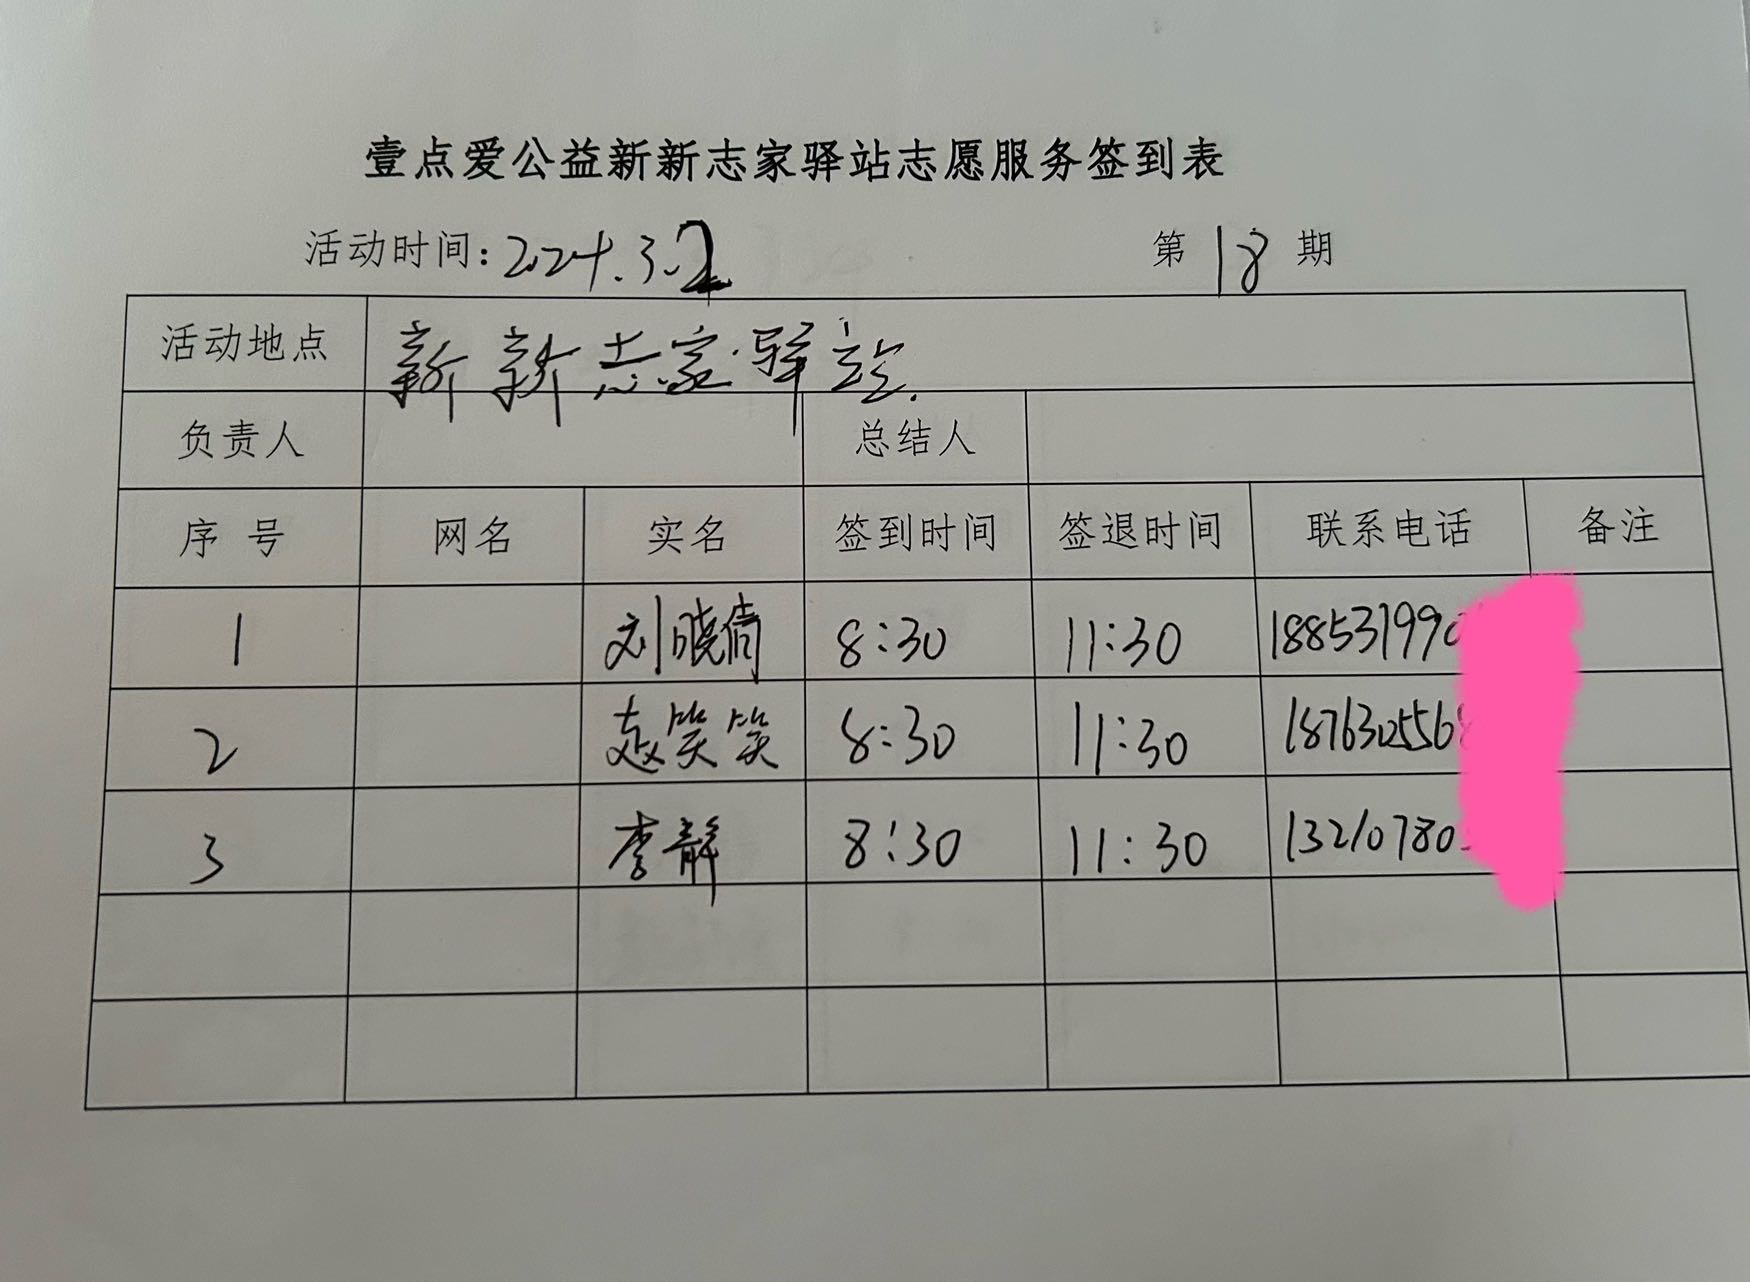 壹点爱公益新新志家驿站志愿服务签到表
活动时间：2024.3.2 第 18 期
活动地点 新新志家驿站.
负责人 总结人
序号 网名 实名 签到时间 签退时间 联系电话 备注
1 刘晓倩 8:30 11:30 188531990
2 赵笑笑 8:30 11:30 1876305568
3 李静 8:30 11:30 13210780